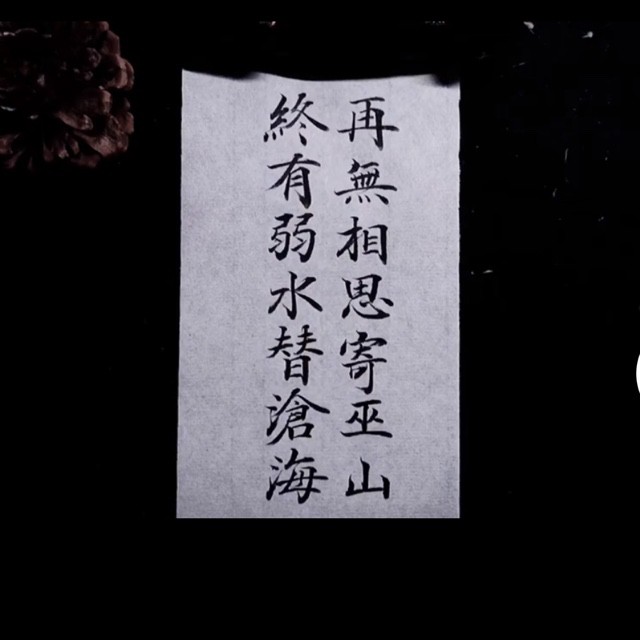 再無相思寄巫山
終有弱水替滄海